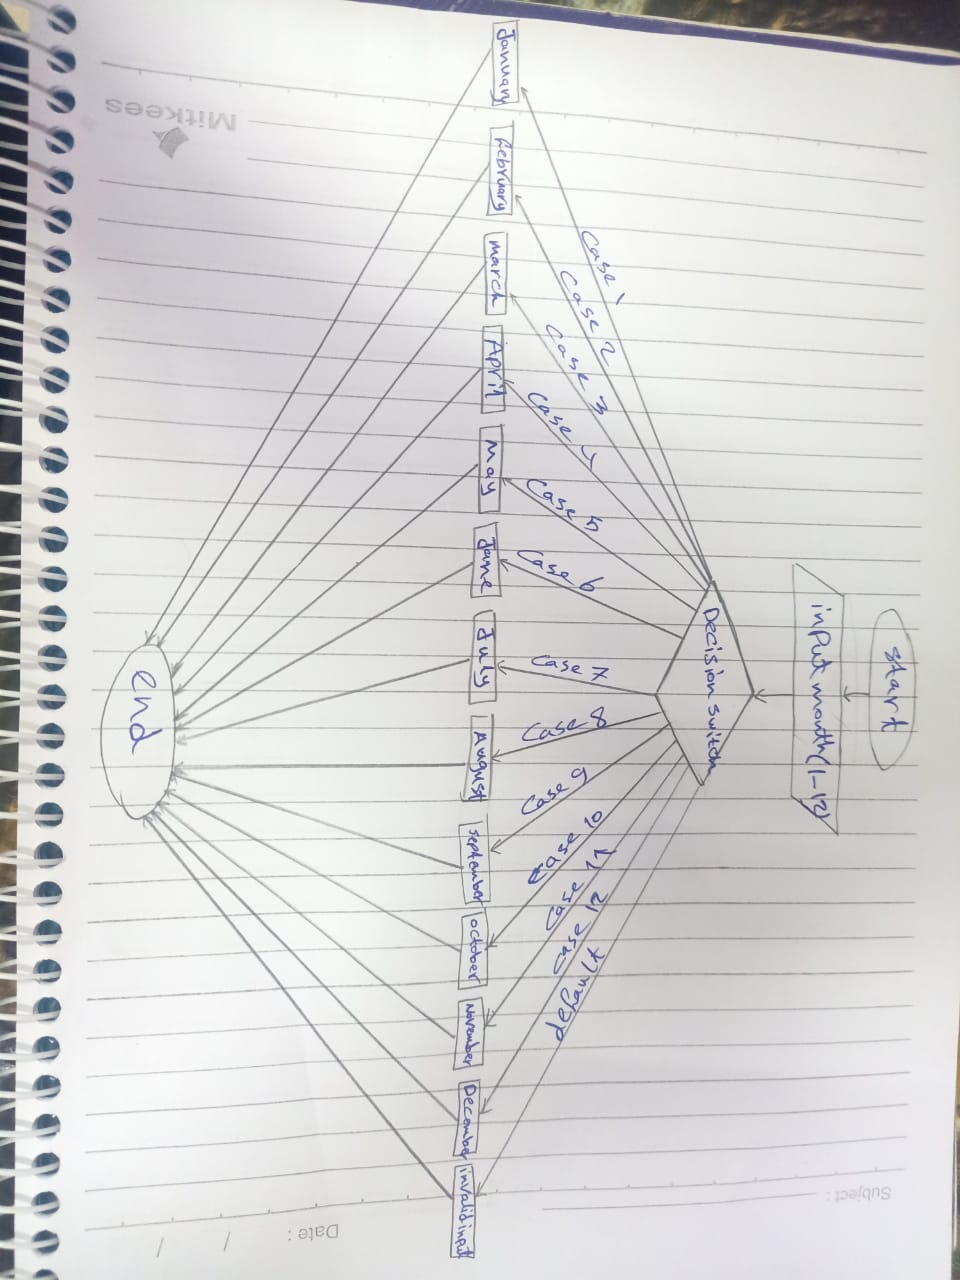 start
input month (1-12)
Decision switch
Case 1
Case 2
Case 3
Case 4
Case 5
Case 6
Case 7
Case 8
Case 9
Case 10
Case 11
Case 12
default
January
february
march
April
may
June
July
August
september
october
november
December
invalid input
end
Mitkees
Subject :
Date : / /